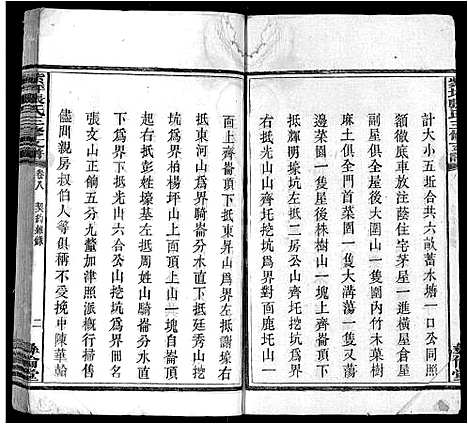 計大小五坵合共六畝蓄水塘一口公同照
額車放應用灌注蔭住宅茅屋一進橫屋倉屋
副屋俱全屋後大園一隻圍内竹木菓樹
麻土俱全門首菜園一隻凟蕩一隻又
邊菜園一隻屋後株樹山一塊上齊崙頂下
抵輝明壕左抵二房公山齊圫挖坑為界
右抵光山山齊圫挖坑為界面鹿圫山一
面上齊崙頂下抵東昇山為界左抵謝壕右
抵東河山為界騎崙分水直下抵廷秀山挖
坑為界柏楊圫山上面山一塊自崙頂
下為界下抵光山六合公山挖坑為界冊名
起右抵彭姓壕基左抵周姓山騎崙分水直
張文山正餉五分九釐加津照派概行掃售
儘問親房叔伯人等俱稱不受挽中陳華翰
張氏三修支譜
卷八
契約雜錄
二